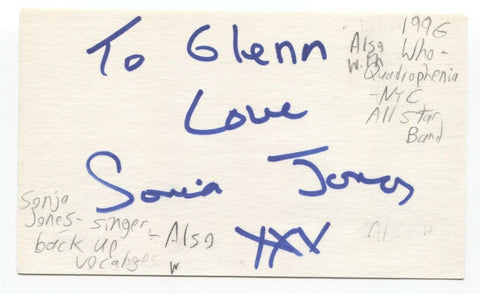 To Glenn
Love
Sonia Jones
XXX
1996
Also Who-
with Quadrophenia
-NYC
All Star
Band
Sonja
Jones-singer
back up - Also
vocables w
Also w